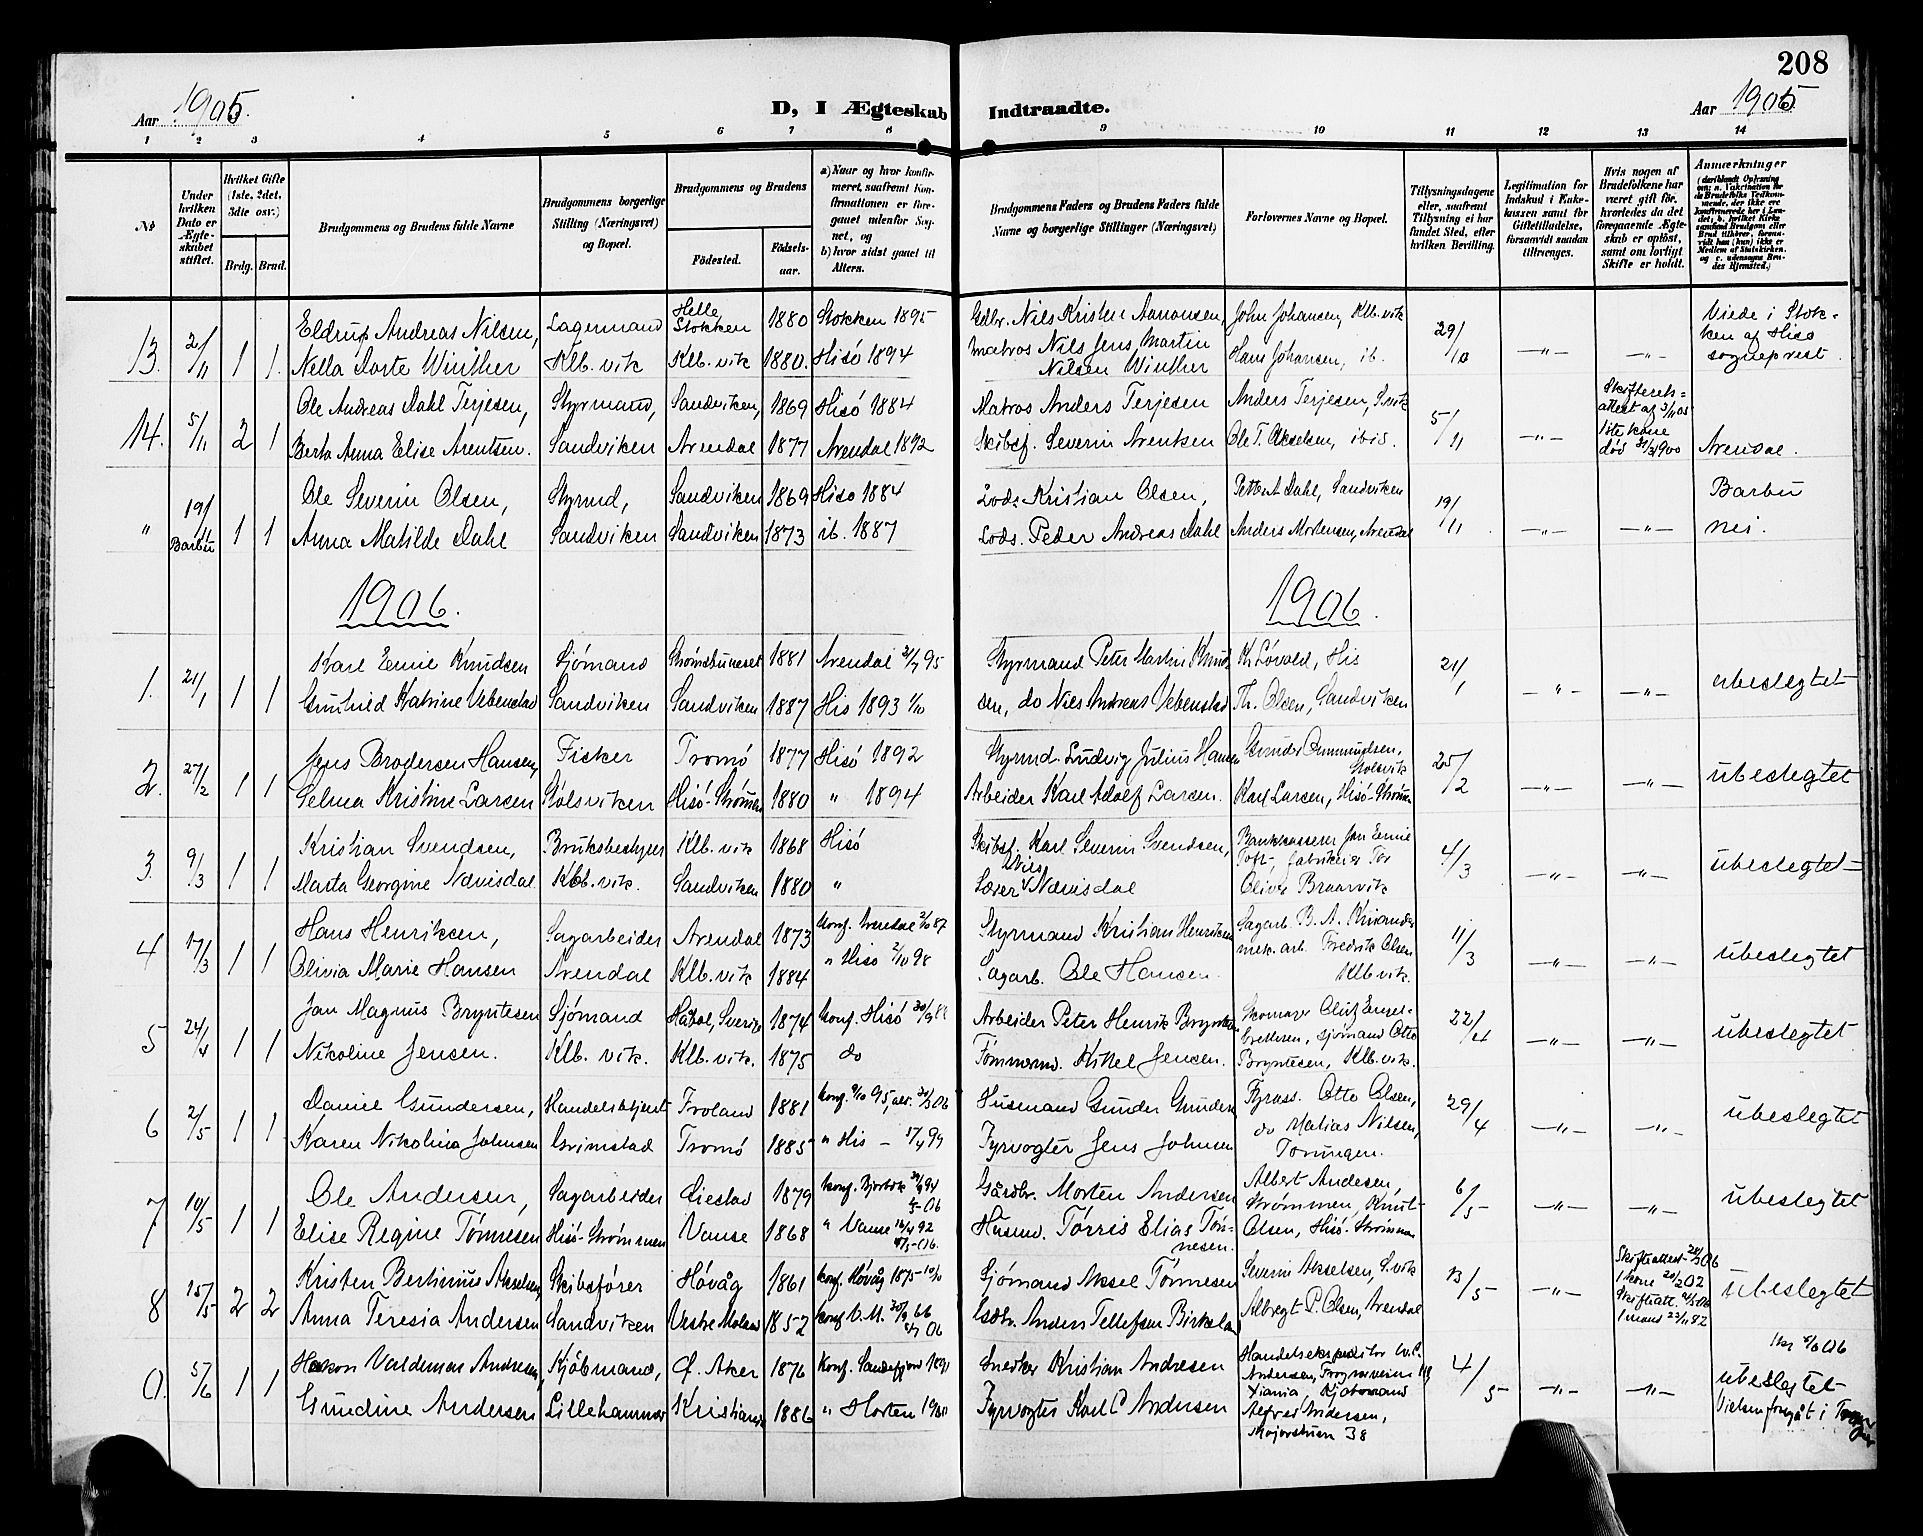 208
Aar 1905.
D, I Ægteskab Indtraadte.
Aar 1905
1 2 3 4 5 6 7 8 9 10 11 12 13 14
№
Under hvilken Dato er Ægteskabet stiftet.
Hvilket Gifte (1ste, 2det, 3die osv.)
Brdg. Brud.
Brudgommens og Brudens fulde Navne
Brudgommens borgerlige Stilling (Næringsvei) og Bopæl.
Brudgommens og Brudens
Fødested.
Fødselsaar.
a) Naar og hvor konfirmeret, saafremt Konfirmationen er foregaaet udenfor Sognet, og
b) hvor sidst gaaet til Alters.
Brudgommens Faders og Brudens Faders fulde Navne og borgerlige Stillinger (Næringsvei)
Forlovernes Navne og Bopæl.
Tillysningsdagene eller, saafremt Tillysning ei har fundet Sted, efter hvilken Bevilling.
Legitimation for Indskud i Enkekassen samt for Giftetilladelse, forsaavidt saadan tiltrænges.
Hvis nogen af Brudefolkene har været gift før, hvorledes da det foregaaende Ægteskab er opløst, samt om lovligt Skifte er holdt.
Anmærkninger
13. 2/11 1 1. Eldrup Andreas Nilsen, Lagermand Helle, Stokken 1880 Stokken 1895 Gdbr. Nils Kristen Aanonsen, John Johansen, Klb.vik 29/10 Viede i Stokken af Hisø sogneprest.
Nella Dorte Winther Klb. vik Klb. vik 1880. Hisø 1894 Matros Nils Jens Martin Nilsen Winther Hans Johansen, ib. —"— —"—
14. 5/11 2 1 Ole Andreas Dahl Terjesen, Styrmand, Sandviken, 1869 Hisø 1884 Matros Anders Terjesen Anders Terjesen, S.vik 5/11 Skifterets-attest af 3/11 05 1ste kone død 31/3 1900
Berta Anna Elise Arentsen. Sandviken Arendal 1877 Arendal 1892 Skibsf. Severin Arentsen Ole T. Akselsen, ibid. —"— Arendal.
" 19/11 Barbu 1 1 Ole Severin Olsen, Styrmd, Sandviken 1869 Hisø 1884 Lods Kristian Olsen, Petter A Dahl, Sandviken 19/11 Barbu
Anna Matilde Dahl Sandviken Sandviken 1873 ib. 1887 Lods. Peder Andreas Dahl Anders Mortensen, Arendal —"— —"— nei.
1906. 1906.
1. 21/1 1 1 Karl Emil Knudsen Sjømand Strømsbuneset 1881 Arendal 21/7 95 Styrmand Peter Martin Knud- K. Løvold, His 21/1
Gunhild Katrine Vebenstad Sandviken Sandviken 1887 His 1893 1/10 sen, do Nils Andreas Vebenstad Th. Olsen, Sandviken —"— —"— ubeslegtet
2. 27/2 1 1 Jens Brodersen Hansen, Fisker Tromø 1877 Hisø 1892 Styrmd. Ludvig Julius Hansen Gunder Ommundsen, Kolsvik 25/2
Selma Kristine Larsen Kolsviken Hisø-Strømen 1880 " 1894 Arbeider Karl Adolf Larsen. Karl Larsen, Hisø-Strømen —"— —"— ubeslegtet
3. 9/3 1 1 Kristian Svendsen, Bruksbestyrer Klb. vik 1868 Hisø Skibsf. Karl Severin Svendsen, Bankkasserer Jon Emil Toft, fabrikeier Tor 4/3
Marta Georgine Nævisdal Klb. vik. Sandviken 1880 " Lærer Nils Nævisdal Oliver Braarvik —"— —"— ubeslegtet
4 17/3 1 1 Hans Henriksen, Sagarbeider Arendal 1873 Konf. Arendal 2/10 87 Styrmand Kristian Henriksen Sagarb. B. A. 11/3
Olivia Marie Hansen Arendal Klb. vik 1884 " Hisø 2/10 98 Sagarb. Ole Hansen. mek. arb. Fredrik Olsen Klb vik. —"— —"— ubeslegtet
5 24/4 1 1 Jan Magnus Bryntesen Sjømand Håbol, Sverige 1874 konf. Hisø 30/9 88 Arbeider Peter Henrik Bryntesen Skomager Oluf Emret- 22/4
Nikoline Jensen. Klb. vik. Klb. vik. 1875 do Tømmermd. Kittel Jensen. sjømand Otto Bryntesen, Klb. vik. —"— —"— ubeslegtet
6 2/5 1 1. Daniel Gundersen, Handelsbetjent Froland 1881 Husmand Gunder Gunders Fyrass. Otto Olsen, 29/4
Karen Nikolina Johnsen Grimstad Tromø 1885 " His – 17/4 99 Fyrvogter Jens Johnsen do Matias Nilsen, Torungen. —"— —"— ubeslegtet
7. 10/5 1 1 Ole Andersen, Sagarbeider Liestad 1879 Gårdbr. Morten Andersen Albert Andesen, Strømmen, Knut 6/5
Elise Regine Tønnesen Hisø-Strømmen Vanse 1868 " Vanse Husmd. Tørris Elias Tønnesen. Olsen, Hisø-Strømmen —"— —"— ubeslegtet
8 15/5 2 2 Kristen Bertinius Akselsen, Skibsfører Høvåg 1861 konf. Høvåg 1875 10/10 Sjømand Aksel Tønnesen Severin Akselsen, S.vik 13/5 Skifteattest 1 kone 20/2 02
Anna Teresia Andersen Sandviken Vestre Moland 1852 konf V. M. 30/9 66 Gdbr. Anders Tellefsen Birkeland Albregt P. Olsen, Arendal —"— 1 mand 23/11 82 ubeslegtet
9. 5/6 1 1 Håkon Valdemar Andresen, Kjøbmand, Ø. Aker 1876 Konf. Sandefjord 1891 Snedker Kristian Andresen Handelsekspeditør W. C. Andersen, Trognerveien 4/5
Gundine Andersen Lillehammer Kristiansa 1886 " Horten 1900 Fyrvogter Karl C Andersen Xiania, Kjøbmand Alfred Andersen, Majorstuen 38 —"— —"— ubeslegtet Vielsen foregåt i